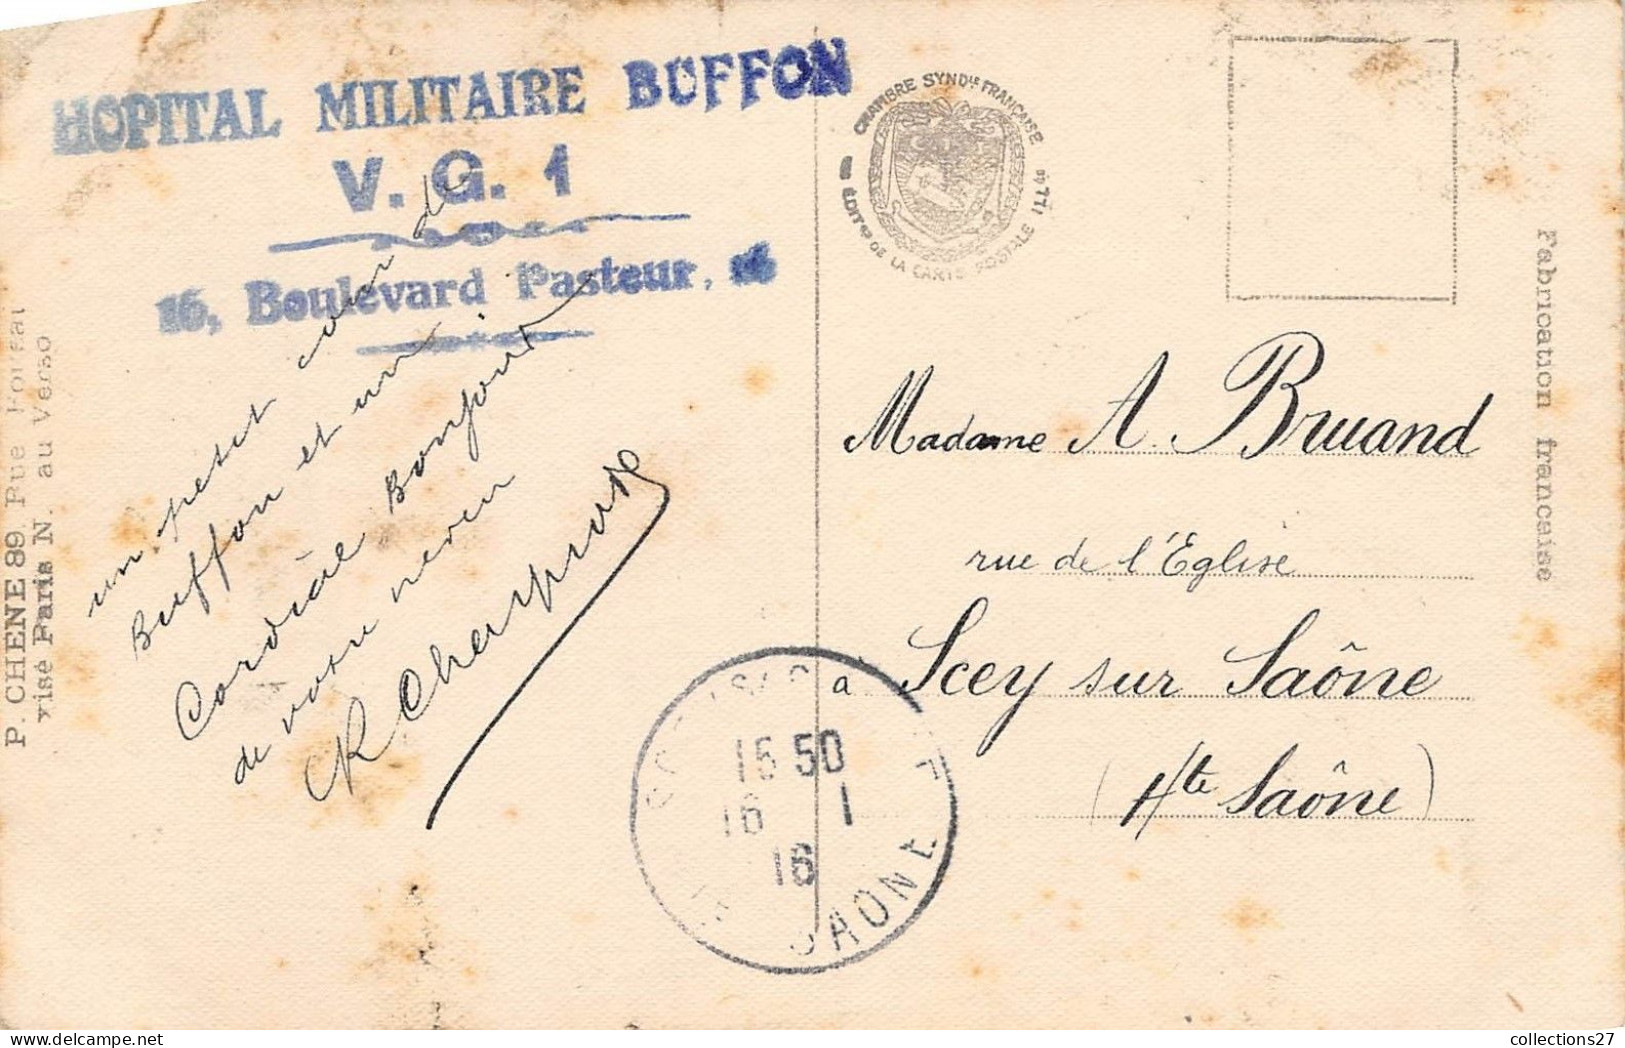 HOPITAL MILITAIRE BUFFON
V. G. 1
16, Boulevard Pasteur, 16
un petit coin de
Buffon et un
Cordiale Bonjour
de votre neveu
P. CHENE 89, Rue
visé Paris N. au Verso
CHAMBRE SYNDLE FRANÇAISE
DE LA CARTE POSTALE ILLée
Fabrication française
Madame A. Bruand
rue de l'Eglise
à Scey sur Saône
(Hte Saône)
15 50
16 1
16
SAONE
collections27